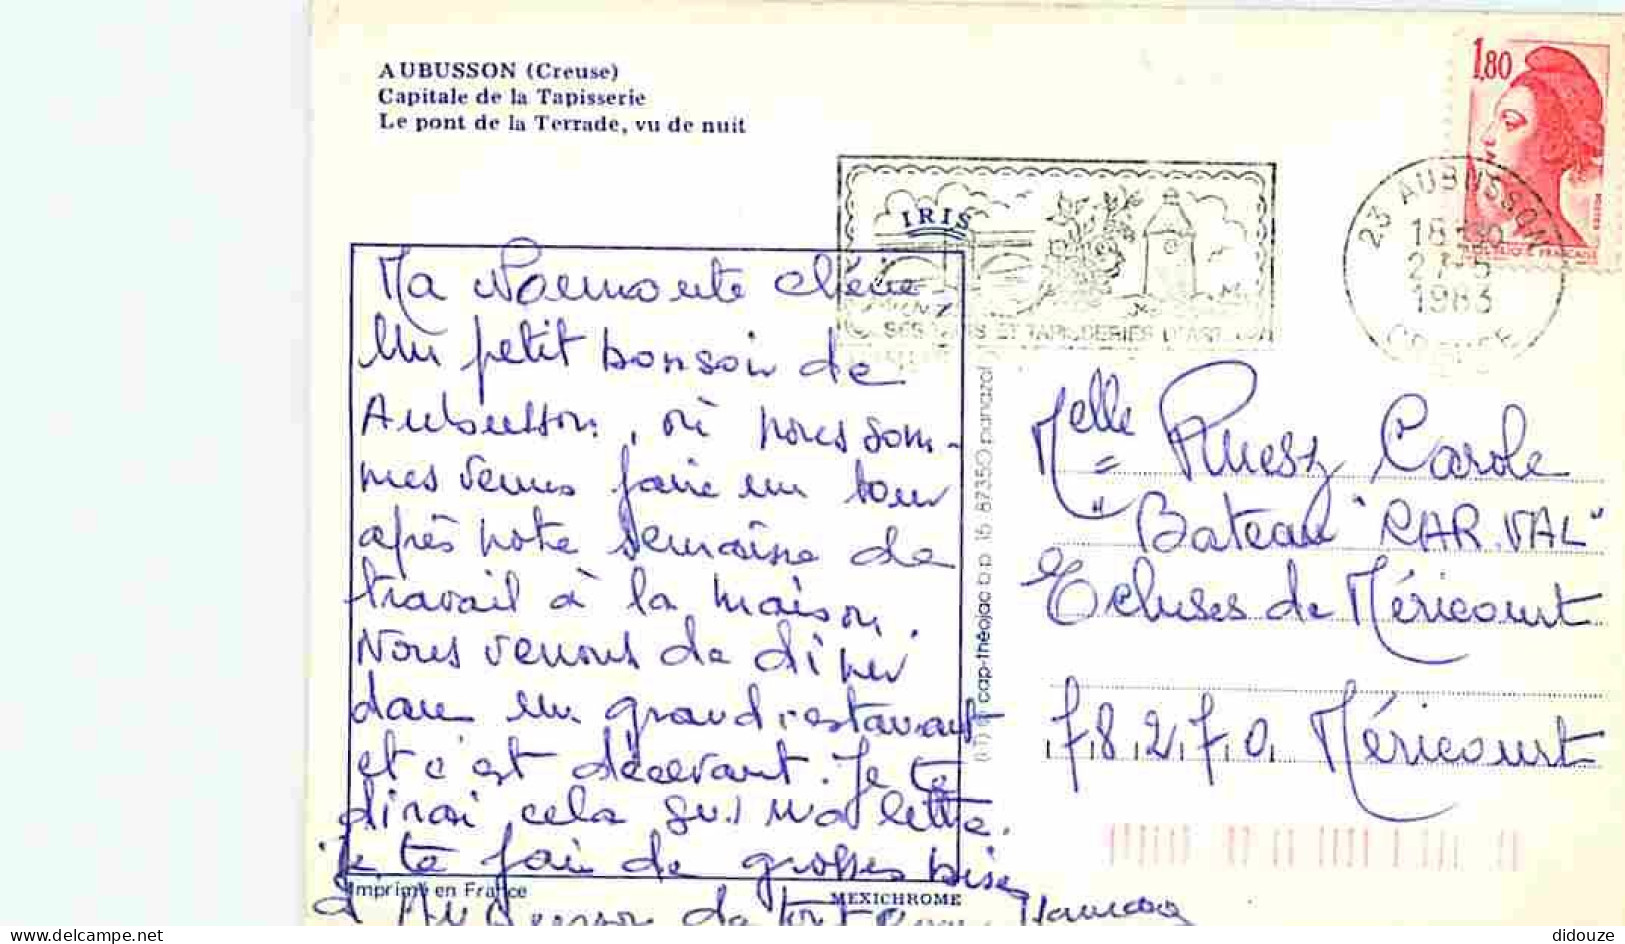 AUBUSSON (Creuse)
Capitale de la Tapisserie
Le pont de la Terrade, vu de nuit
1,80
IRIS
SES TAPIS ET TAPISSERIES D'ART
23 AUBUSSON
18 H30
27-5
1983
CREUSE
REPUBLIQUE FRANCAISE
Ma chérie
Un petit bonsoir de
Aubusson, où nous som-
mes venus faire un tour
après notre semaine de
travail à la maison.
Nous venons de diner
dans un grand restaurant
et c'est décevant. Je te
dirai cela sur ma lettre.
Je te fais de grosses bises
d'Aubusson
Maman
cap-théojac b.p. 15 87350 panazol
Melle Ruesz Carole
Bateau "CAR.VAL"
Ecluses de Méricourt
78270 Méricourt
Imprimé en France
MEXICHROME
delcampe.net
didouze